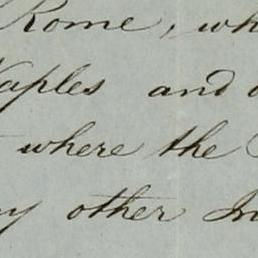 Rome, wh
Naples and
where the
other In